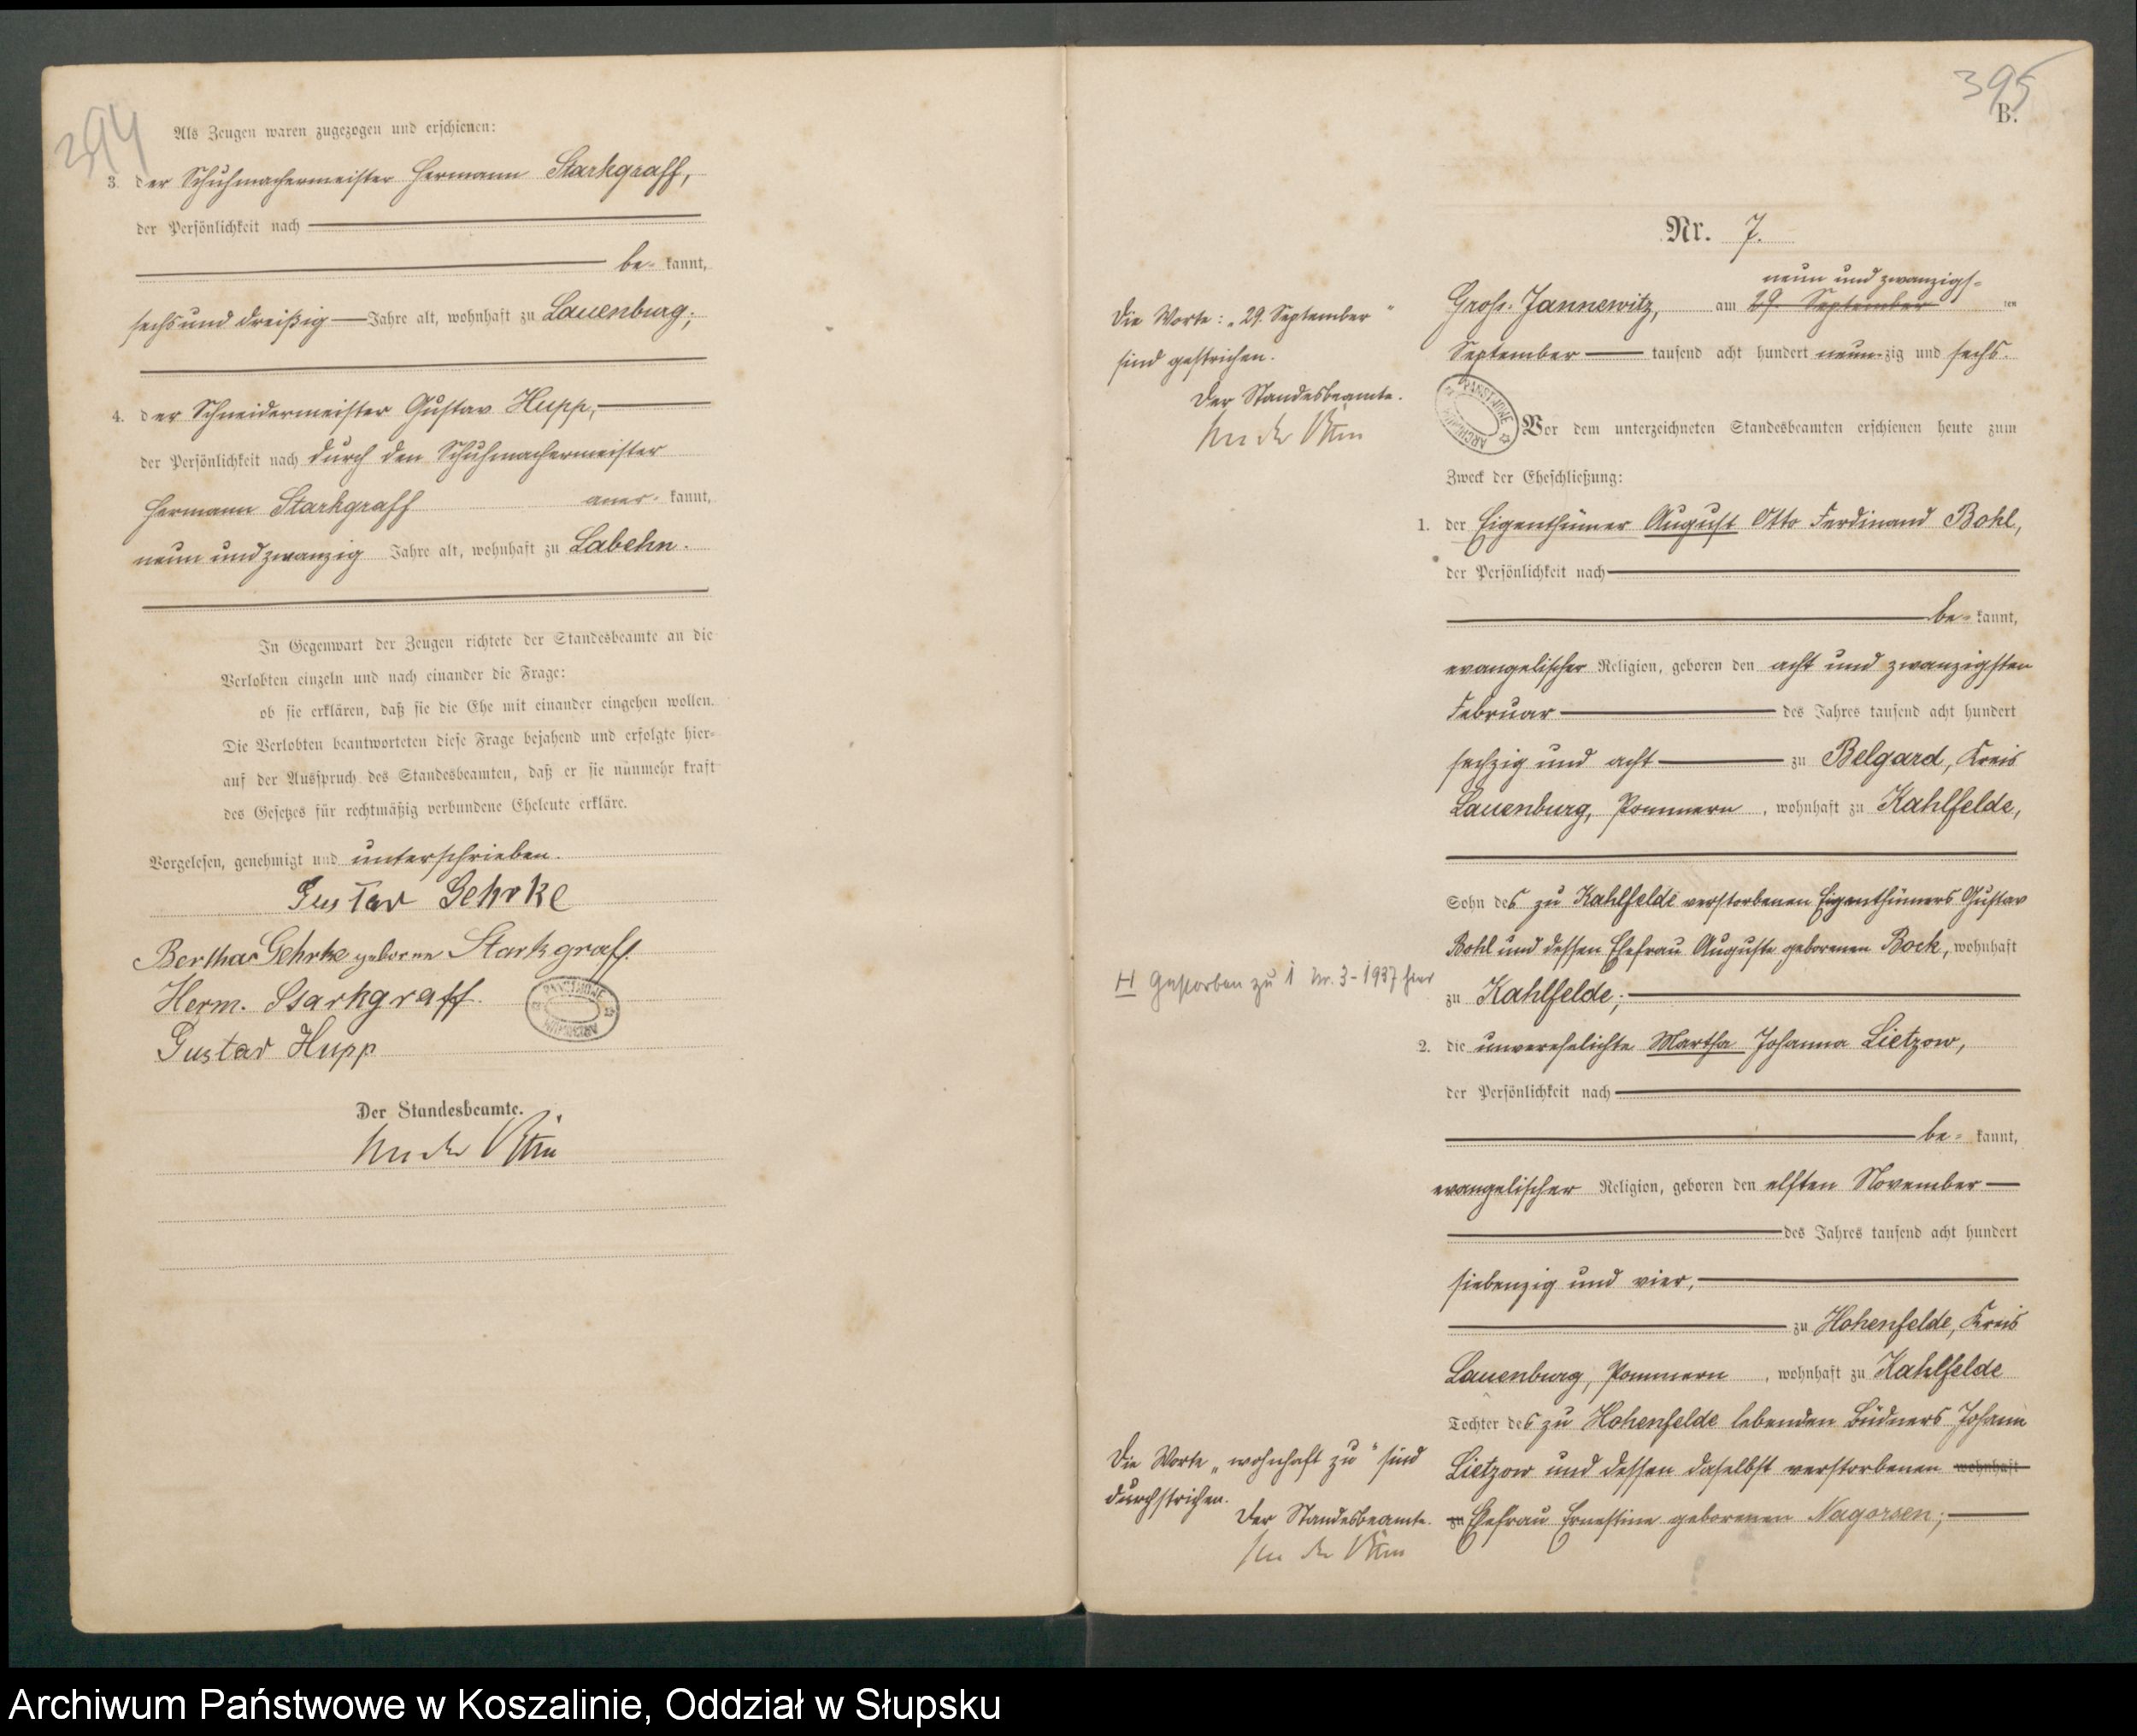 394
Als Zeugen waren zugezogen und erschienen:
3. der Schuhmachermeister Hermann Starkgraff,
der Persönlichkeit nach
be- kannt,
sechs und dreißig Jahre alt, wohnhaft zu Lauenburg;
4. der Schneidermeister Gustav Hupp,
der Persönlichkeit nach durch den Schuhmachermeister
Hermann Starkgraff aner- kannt,
neun und zwanzig Jahre alt, wohnhaft zu Labehn.
In Gegenwart der Zeugen richtete der Standesbeamte an die
Verlobten einzeln und nach einander die Frage:
ob sie erklären, daß sie die Ehe mit einander eingehen wollen.
Die Verlobten beantworteten diese Frage bejahend und erfolgte hier-
auf der Ausspruch des Standesbeamten, daß er sie nunmehr kraft
des Gesetzes für rechtmäßig verbundene Eheleute erkläre.
Vorgelesen, genehmigt und unterschrieben.
Gustav Gehrke
Bertha Gehrke geborne Starkgraff.
Herm. Starkgraff.
Gustav Hupp
Der Standesbeamte.
395
B.
Nr. 7.
neun und zwanzigs-
Gross Jannewitz, am 29. September ten
September tausend acht hundert neunzig und sechs.
Die Worte: „29. September“
sind gestrichen.
Der Standesbeamte.
Vor dem unterzeichneten Standesbeamten erschienen heute zum
Zweck der Eheschließung:
1. der Eigenthümer August Otto Ferdinand Bohl,
der Persönlichkeit nach
be- kannt,
evangelischer Religion, geboren den acht und zwanzigsten
Februar des Jahres tausend acht hundert
sechzig und acht zu Belgard, Kreis
Lauenburg, Pommern, wohnhaft zu Kahlfelde,
Sohn des zu Kahlfelde verstorbenen Eigenthümers Gustav
Bohl und dessen Ehefrau Auguste geborenen Bock, wohnhaft
zu Kahlfelde;
H Gestorben zu 1 Nr. 3-1937 hier
2. die unverehelichte Martha Johanna Lietzow,
der Persönlichkeit nach
be- kannt,
evangelischer Religion, geboren den elften November
des Jahres tausend acht hundert
siebenzig und vier,
zu Hohenfelde, Kreis
Lauenburg, Pommern, wohnhaft zu Kahlfelde
Tochter des zu Hohenfelde lebenden Büdners Johann
Lietzow und dessen daselbst verstorbenen wohnhaft
zu Ehefrau Ernestine geborenen Nagorsen;
Die Worte „wohnhaft zu“ sind
durchstrichen.
Der Standesbeamte.
Archiwum Państwowe w Koszalinie, Oddział w Słupsku